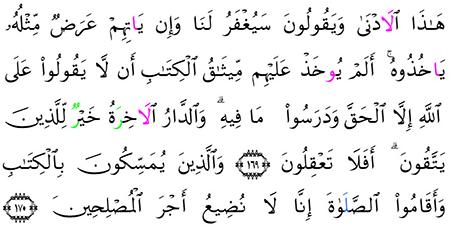 هَٰذَا اَ۬لَادْنَىٰ وَيَقُولُونَ سَيُغْفَرُ لَنَا وَإِن يَاتِهِمْ عَرَضٞ مِّثْلُهُۥ
يَاخُذُوهُۚ أَلَمْ يُوخَذْ عَلَيْهِم مِّيثَٰقُ اُ۬لْكِتَٰبِ أَن لَّا يَقُولُواْ عَلَى
اَ۬للَّهِ إِلَّا اَ۬لْحَقَّ وَدَرَسُواْ مَا فِيهِۗ وَالدَّارُ اُ۬لَاخِرَةُ خَيْرٞ لِّلذِينَ
يَتَّقُونَۗ أَفَلَا تَعْقِلُونَ ١٦٩ وَالذِينَ يُمَسِّكُونَ بِالْكِتَٰبِ
وَأَقَامُواْ اُ۬لصَّلَوٰةَ إِنَّا لَا نُضِيعُ أَجْرَ اَ۬لْمُصْلِحِينَ ١٧٠